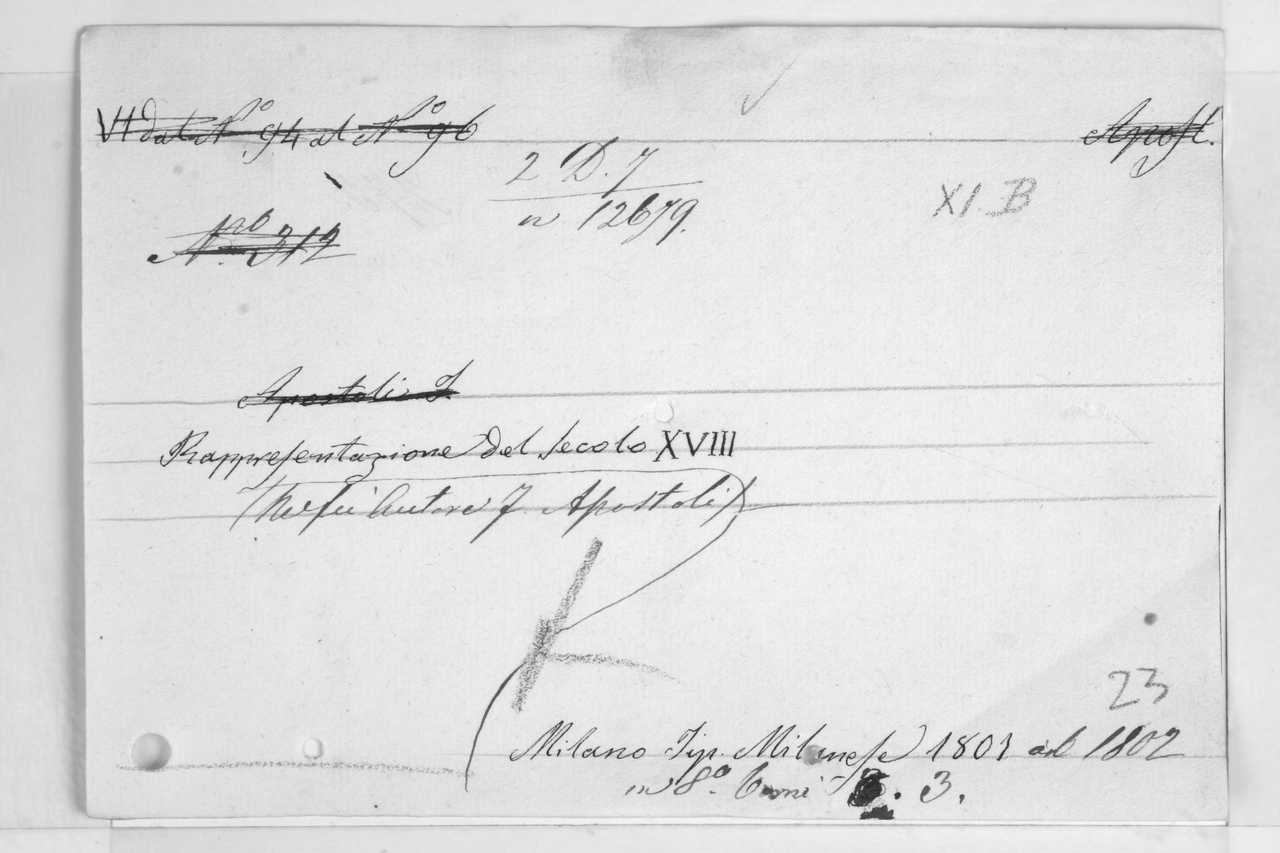 VI dal N.º 94 al N.º 96
Apost.
2 D. 7
n 12679.
XI. B
N.ro 312
Apostoli F.
Rappresentazione del secolo XVIII
(Ne fu Autore F. Apostoli)
23
Milano Tip. Milanese 1801 al 1802
in 8º. Tomi 3.